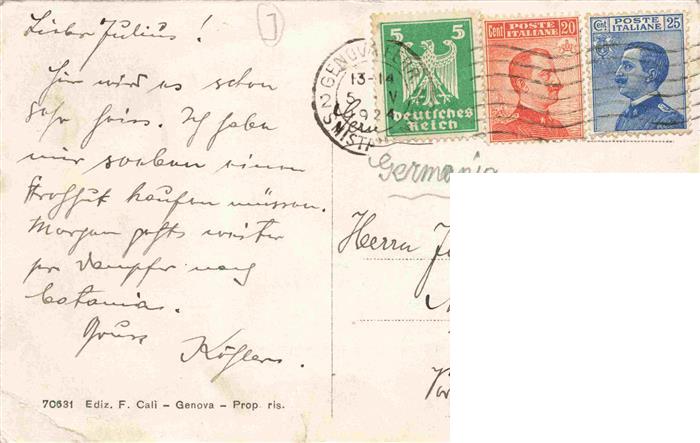 Lieber Julius !
Hier wird es schon
sehr heiss. Ich habe
mir soeben einen
Strohhut kaufen müssen.
Morgen gehts weiter
per Dampfer nach
Catania.
Gruss
Köhlers.
70631 Ediz. F. Calì – Genova – Prop. ris.
GENOVA
13-14
5 V
1924
5
Deutsches
Reich
Cent POSTE ITALIANE 20
Cent POSTE ITALIANE 25
Germania
Herrn